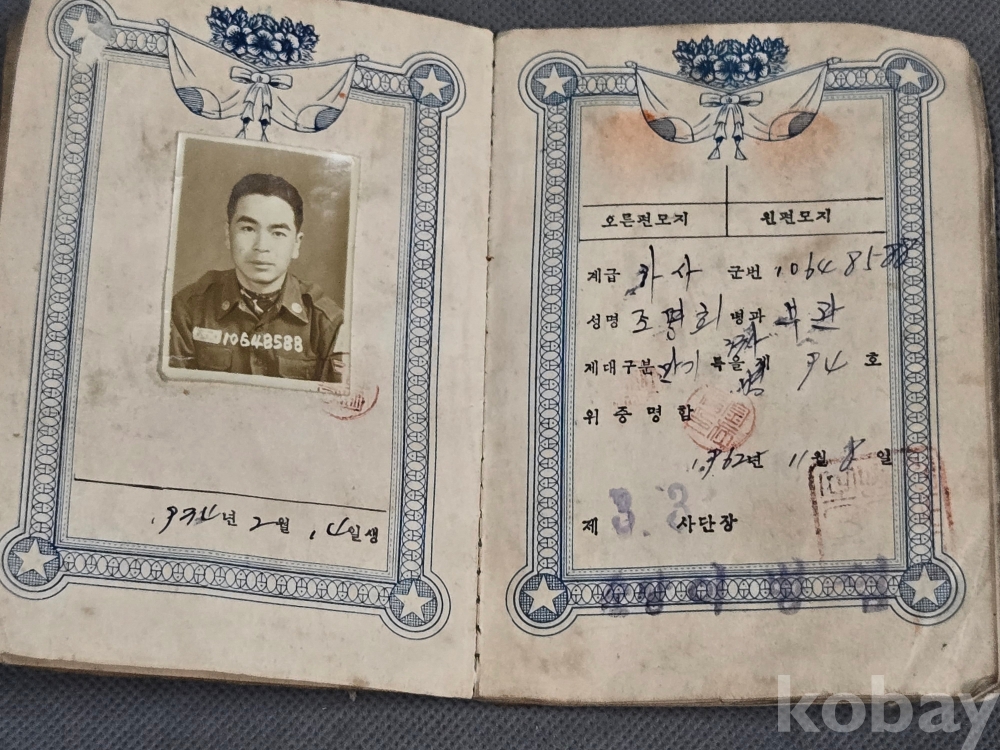 10648588
년 2월 14일생
오른편모지 왼편모지
계급 하사 군번 10648588
성명 조명희 병과 부관
제대구분 만기 특을 제 94 호
위 증명함
1962년 11월 8일
제 33 사단장
kobay